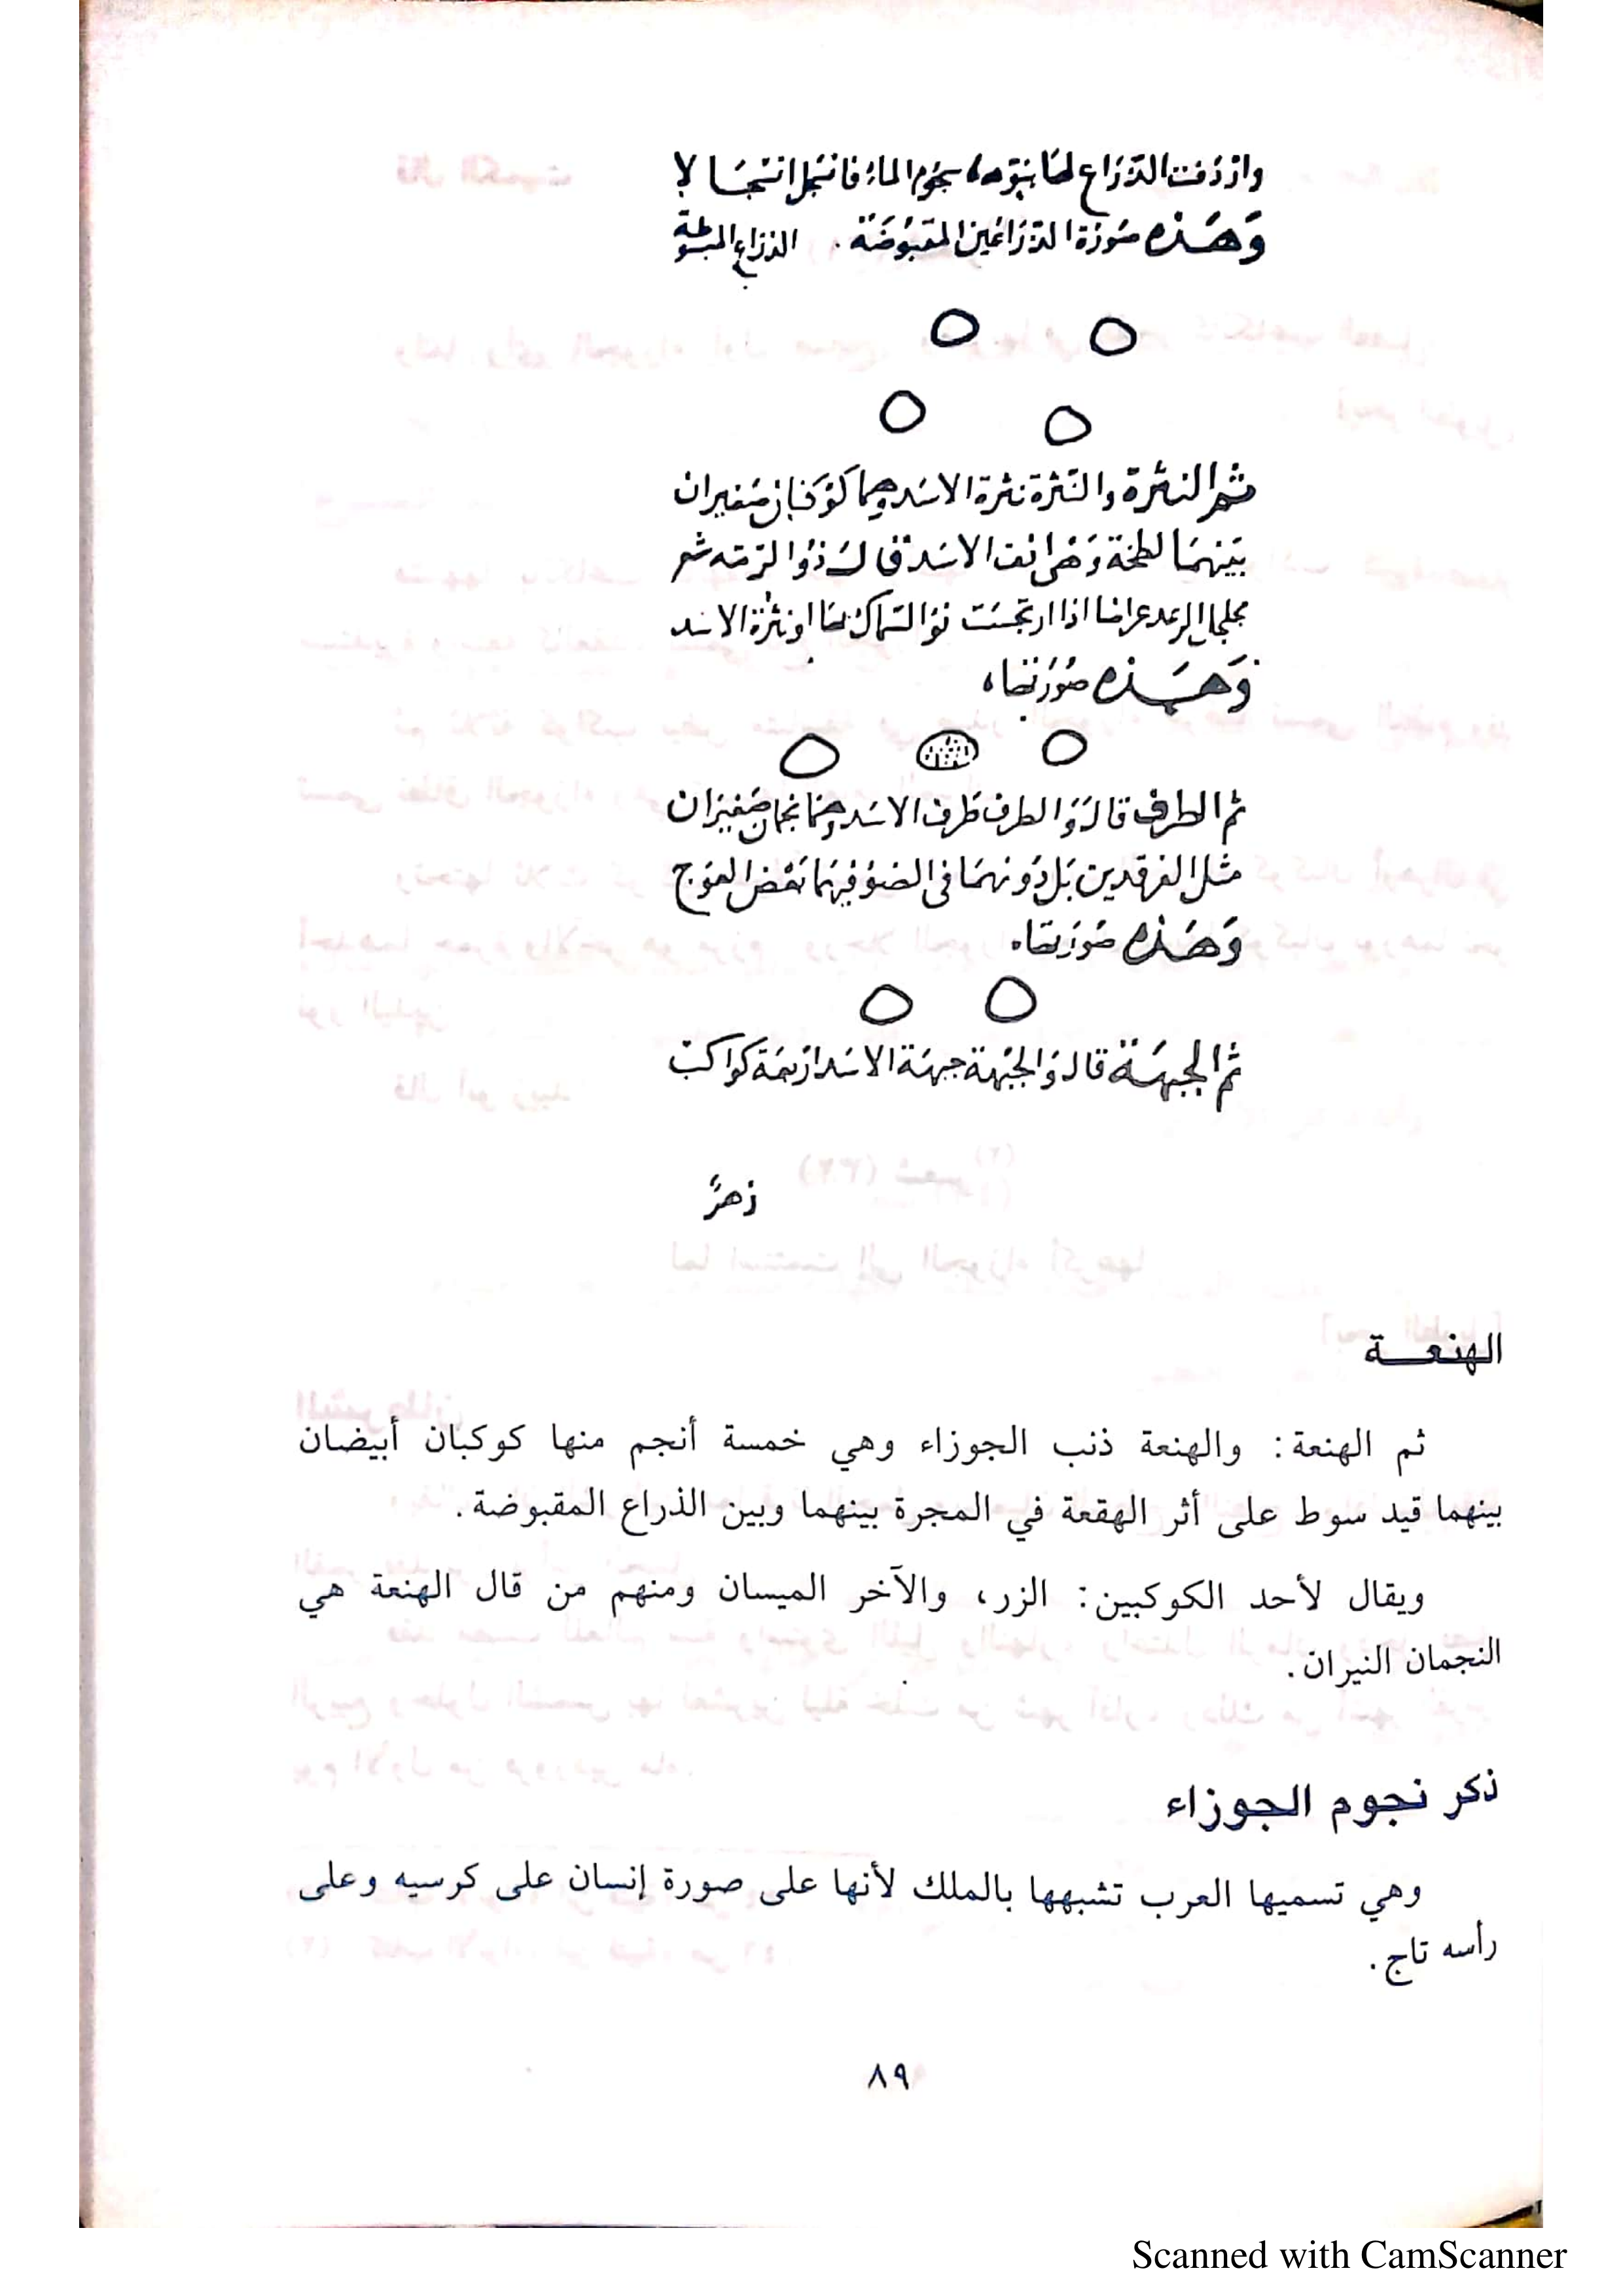 واردفت الذراع لها بنوء سجوم الماء فانسجل انسجالا
وهذه صورة الذراعين المقبوضة . الذراع المبسوطة
ثم النثرة والنثرة نثرة الاسد وهما كوكبان صغيران
بينهما لطخة وهي انف الاسد قال ذو الرمة شعر
مجلجل الرعد عراصا اذا ارتجست نوء السماك او نثرة الاسد
وهذه صورتها،
ثم الطرف قال والطرف طرف الاسد وهما نجمان صغيران
مثل الفرقدين بل دونهما في الضوء فيهما بعض العوج
وهذه صورتها.
ثم الجبهة قال والجبهة جبهة الاسد اربعة كواكب
زهر
الهنعـــة
ثم الهنعة: والهنعة ذنب الجوزاء وهي خمسة أنجم منها كوكبان أبيضان
بينهما قيد سوط على أثر الهقعة في المجرة بينهما وبين الذراع المقبوضة.
ويقال لأحد الكوكبين: الزر، والآخر الميسان ومنهم من قال الهنعة هي
النجمان النيران.
ذكر نجوم الجوزاء
وهي تسميها العرب تشبهها بالملك لأنها على صورة إنسان على كرسيه وعلى
رأسه تاج.
٨٩
Scanned with CamScanner